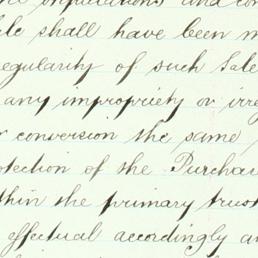 and con
shall have been m
egularity of such Sale
any impropriety or irre
conversion the same
otection of the Purcha
thin the primary trust
effectual accordingly a